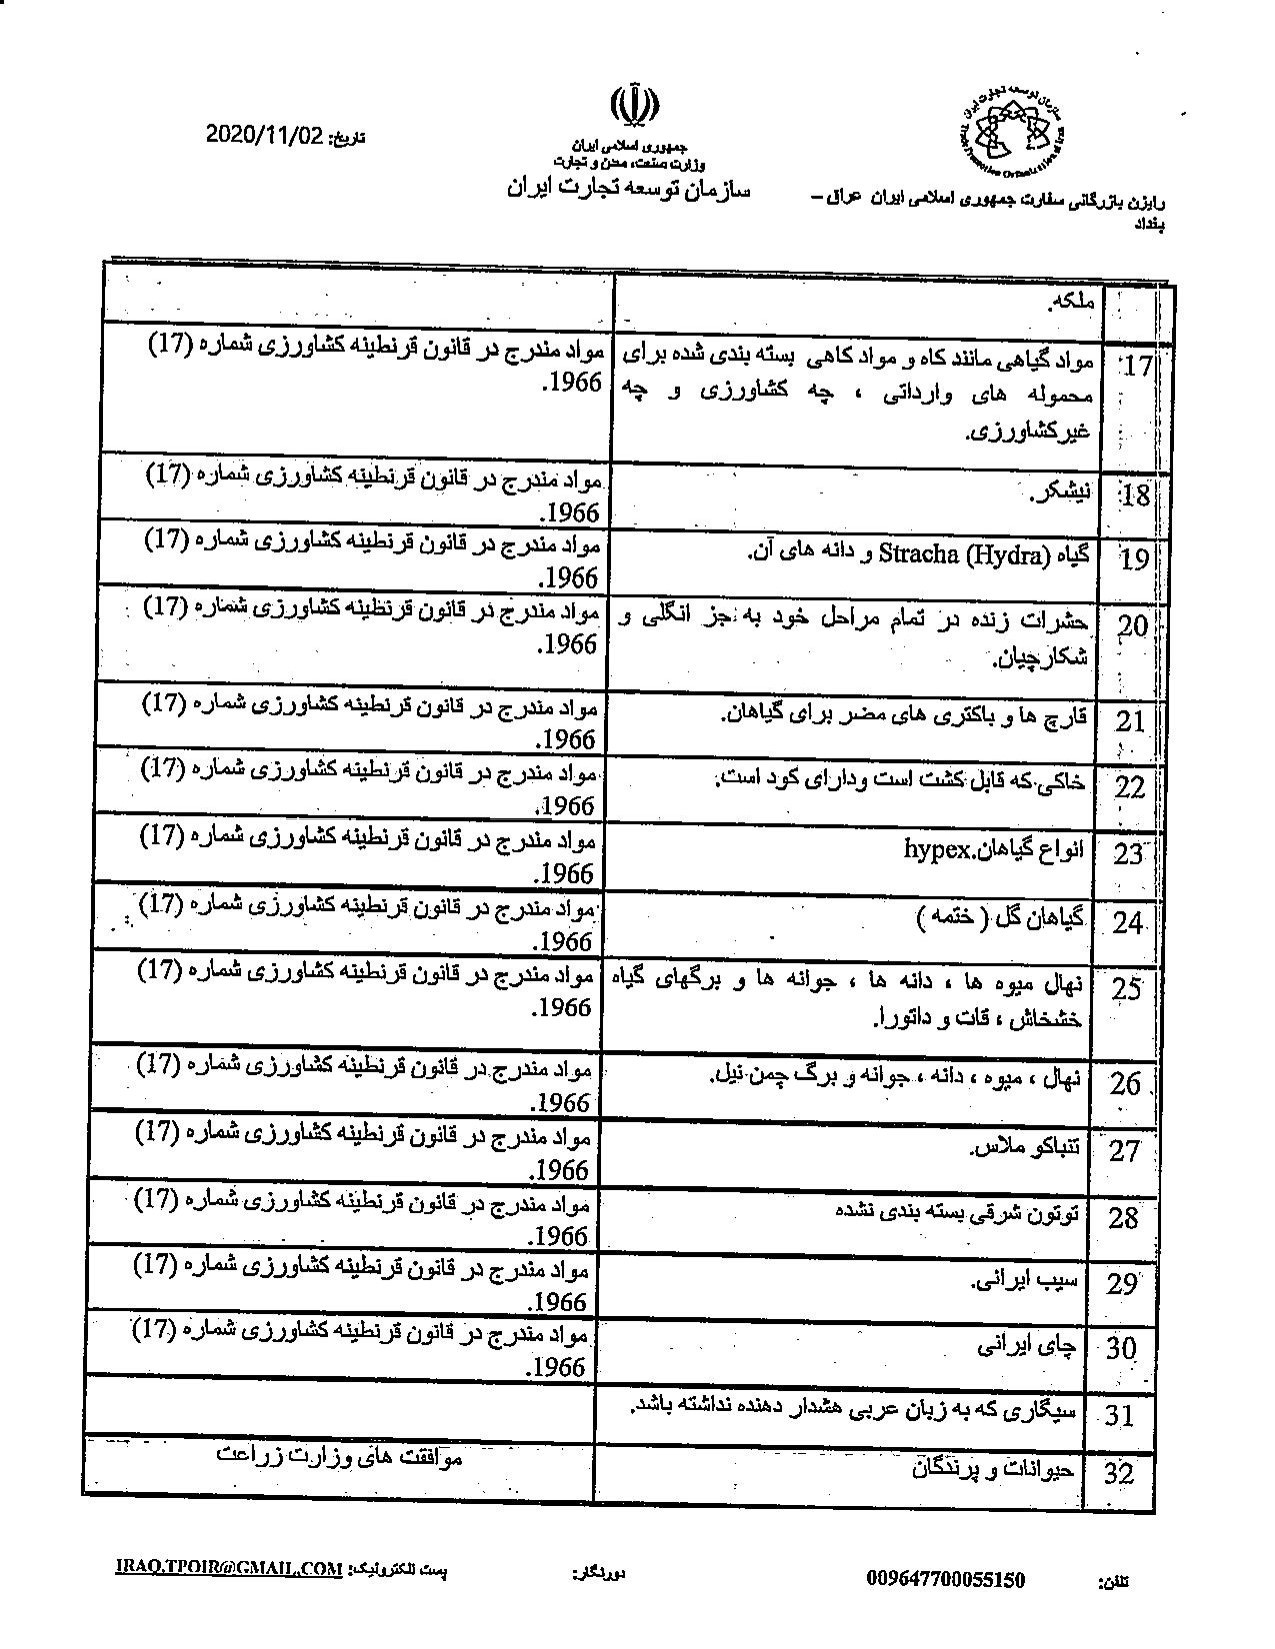 سازمان توسعه تجارت ایران
Trade Promotion Organization of Iran
رایزن بازرگانی سفارت جمهوری اسلامی ایران عراق –
بغداد
جمهوری اسلامی ایران
وزارت صنعت، معدن و تجارت
سازمان توسعه تجارت ایران
تاریخ: 2020/11/02
ملکه.
17
مواد گیاهی مانند کاه و مواد کاهی بسته بندی شده برای
محموله های وارداتی ، چه کشاورزی و چه
غیرکشاورزی.
مواد مندرج در قانون قرنطینه کشاورزی شماره (17)
1966.
18
نیشکر.
مواد مندرج در قانون قرنطینه کشاورزی شماره (17)
1966.
19
گیاه Stracha (Hydra) و دانه های آن.
مواد مندرج در قانون قرنطینه کشاورزی شماره (17)
1966.
20
حشرات زنده در تمام مراحل خود به جز انگلی و
شکارچیان.
مواد مندرج در قانون قرنطینه کشاورزی شماره (17)
1966.
21
قارچ ها و باکتری های مضر برای گیاهان.
مواد مندرج در قانون قرنطینه کشاورزی شماره (17)
1966.
22
خاکی که قابل کشت است ودارای کود است.
مواد مندرج در قانون قرنطینه کشاورزی شماره (17)
1966.
23
انواع گیاهان.hypex
مواد مندرج در قانون قرنطینه کشاورزی شماره (17)
1966.
24
گیاهان گل ( ختمه )
مواد مندرج در قانون قرنطینه کشاورزی شماره (17)
1966.
25
نهال میوه ها ، دانه ها ، جوانه ها و برگهای گیاه
خشخاش ، قات و داتورا.
مواد مندرج در قانون قرنطینه کشاورزی شماره (17)
1966.
26
نهال ، میوه ، دانه ، جوانه و برگ چمن نیل.
مواد مندرج در قانون قرنطینه کشاورزی شماره (17)
1966.
27
تنباکو ملاس.
مواد مندرج در قانون قرنطینه کشاورزی شماره (17)
1966.
28
توتون شرقی بسته بندی نشده
مواد مندرج در قانون قرنطینه کشاورزی شماره (17)
1966.
29
سیب ایرانی.
مواد مندرج در قانون قرنطینه کشاورزی شماره (17)
1966.
30
چای ایرانی
مواد مندرج در قانون قرنطینه کشاورزی شماره (17)
1966.
31
سیگاری که به زبان عربی هشدار دهنده نداشته باشد.
32
حیوانات و پرندگان
موافقت های وزارت زراعت
تلفن: 009647700055150
دورنگار:
پست الکترونیک: IRAQ.TPOIR@GMAIL.COM